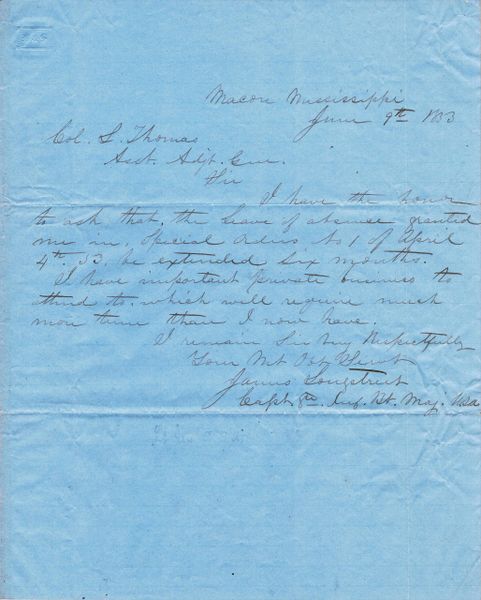 Macon Mississippi
June 9th 1853
Col. L. Thomas
Asst. Adjt. Gen.
Sir
I have the honor
to ask that the leave of absence granted
me in Special Orders No 1 of April
4th 53. be extended six months.
I have important private business to
attend to which will require much
more time than I now have.
I remain Sir Very Respectfully
Your Mt Obt Servt
James Longstreet
Capt. 8th. Inf. Bt. Maj. USA